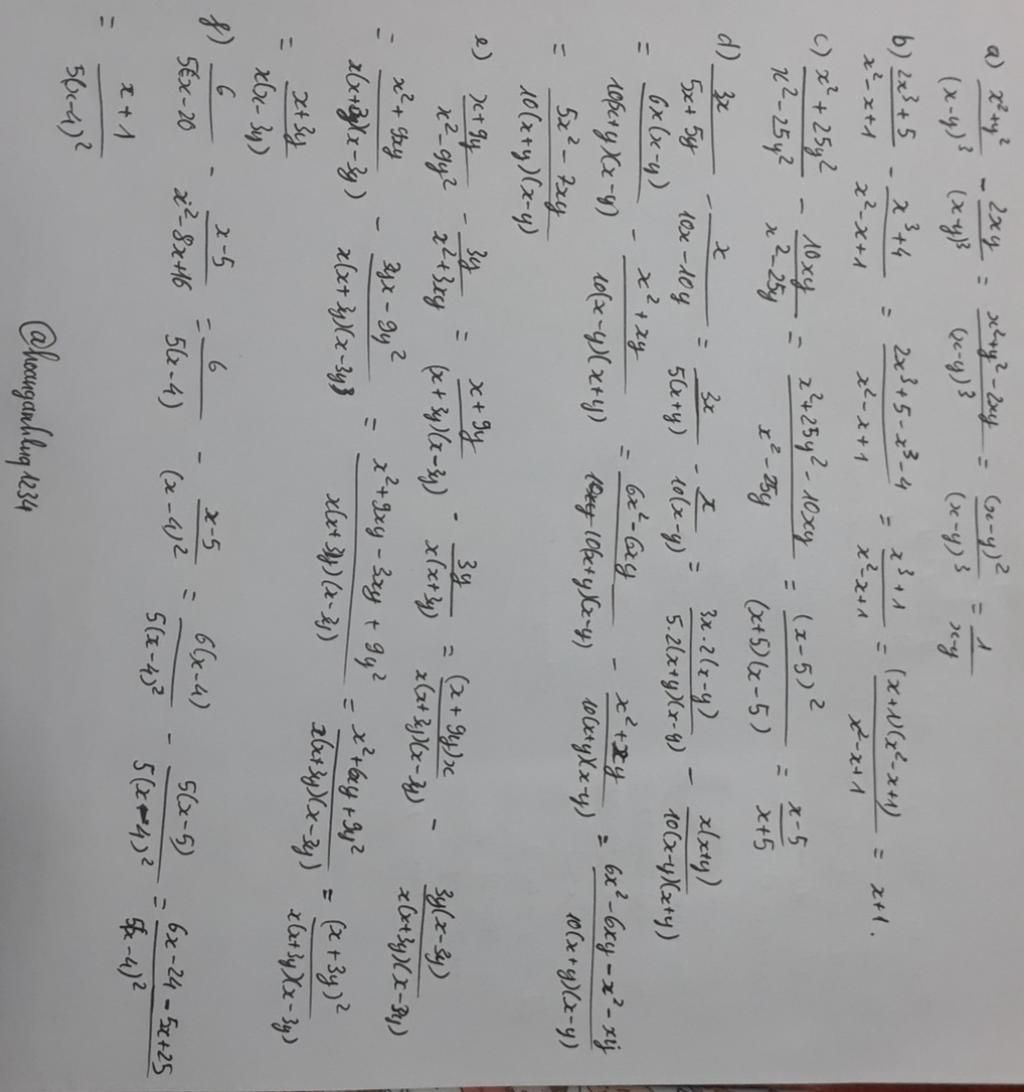 a) (x²+y²)/(x-y)³ - 2xy/(x-y)³ = (x²+y²-2xy)/(x-y)³ = (x-y)²/(x-y)³ = 1/(x-y)
b) (2x³+5)/(x²-x+1) - (x³+4)/(x²-x+1) = (2x³+5-x³-4)/(x²-x+1) = (x³+1)/(x²-x+1) = (x+1)(x²-x+1)/(x²-x+1) = x+1.
c) (x²+25y²)/(x²-25y²) - 10xy/(x²-25y) = (x²+25y²-10xy)/(x²-25y) = (x-5)²/(x+5)(x-5) = (x-5)/(x+5)
d) 3x/(5x+5y) - x/(10x-10y) = 3x/5(x+y) - x/10(x-y) = 3x.2(x-y)/5.2(x+y)(x-y) - x(x+y)/10(x-y)(x+y)
= 6x(x-y)/10(x+y)(x-y) - (x²+xy)/10(x-y)(x+y) = (6x²-6xy)/10(x+y)(x-y) - (x²+xy)/10(x+y)(x-y) = (6x²-6xy-x²-xy)/10(x+y)(x-y)
= (5x²-7xy)/10(x+y)(x-y)
e) (x+9y)/(x²-9y²) - 3y/(x²+3xy) = (x+9y)/(x+3y)(x-3y) - 3y/x(x+3y) = (x+9y)x/x(x+3y)(x-3y) - 3y(x-3y)/x(x+3y)(x-3y)
= (x²+9xy)/x(x+3y)(x-3y) - (3yx-9y²)/x(x+3y)(x-3y) = (x²+9xy-3xy+9y²)/x(x+3y)(x-3y) = (x²+6xy+9y²)/x(x+3y)(x-3y) = (x+3y)²/x(x+3y)(x-3y)
= (x+3y)/x(x-3y)
f) 6/(5x-20) - (x-5)/(x²-8x+16) = 6/5(x-4) - (x-5)/(x-4)² = 6(x-4)/5(x-4)² - 5(x-5)/5(x-4)² = (6x-24-5x+25)/5(x-4)²
= (x+1)/5(x-4)²